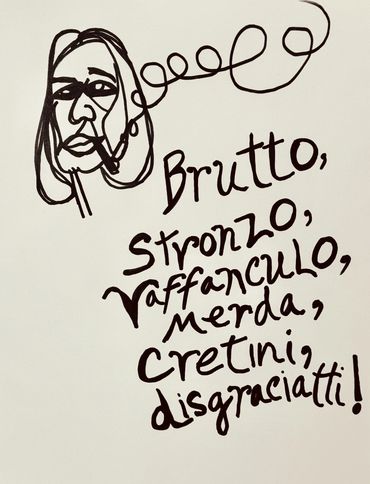 Brutto,
Stronzo,
Vaffanculo,
merda,
cretini,
disgraciatti!